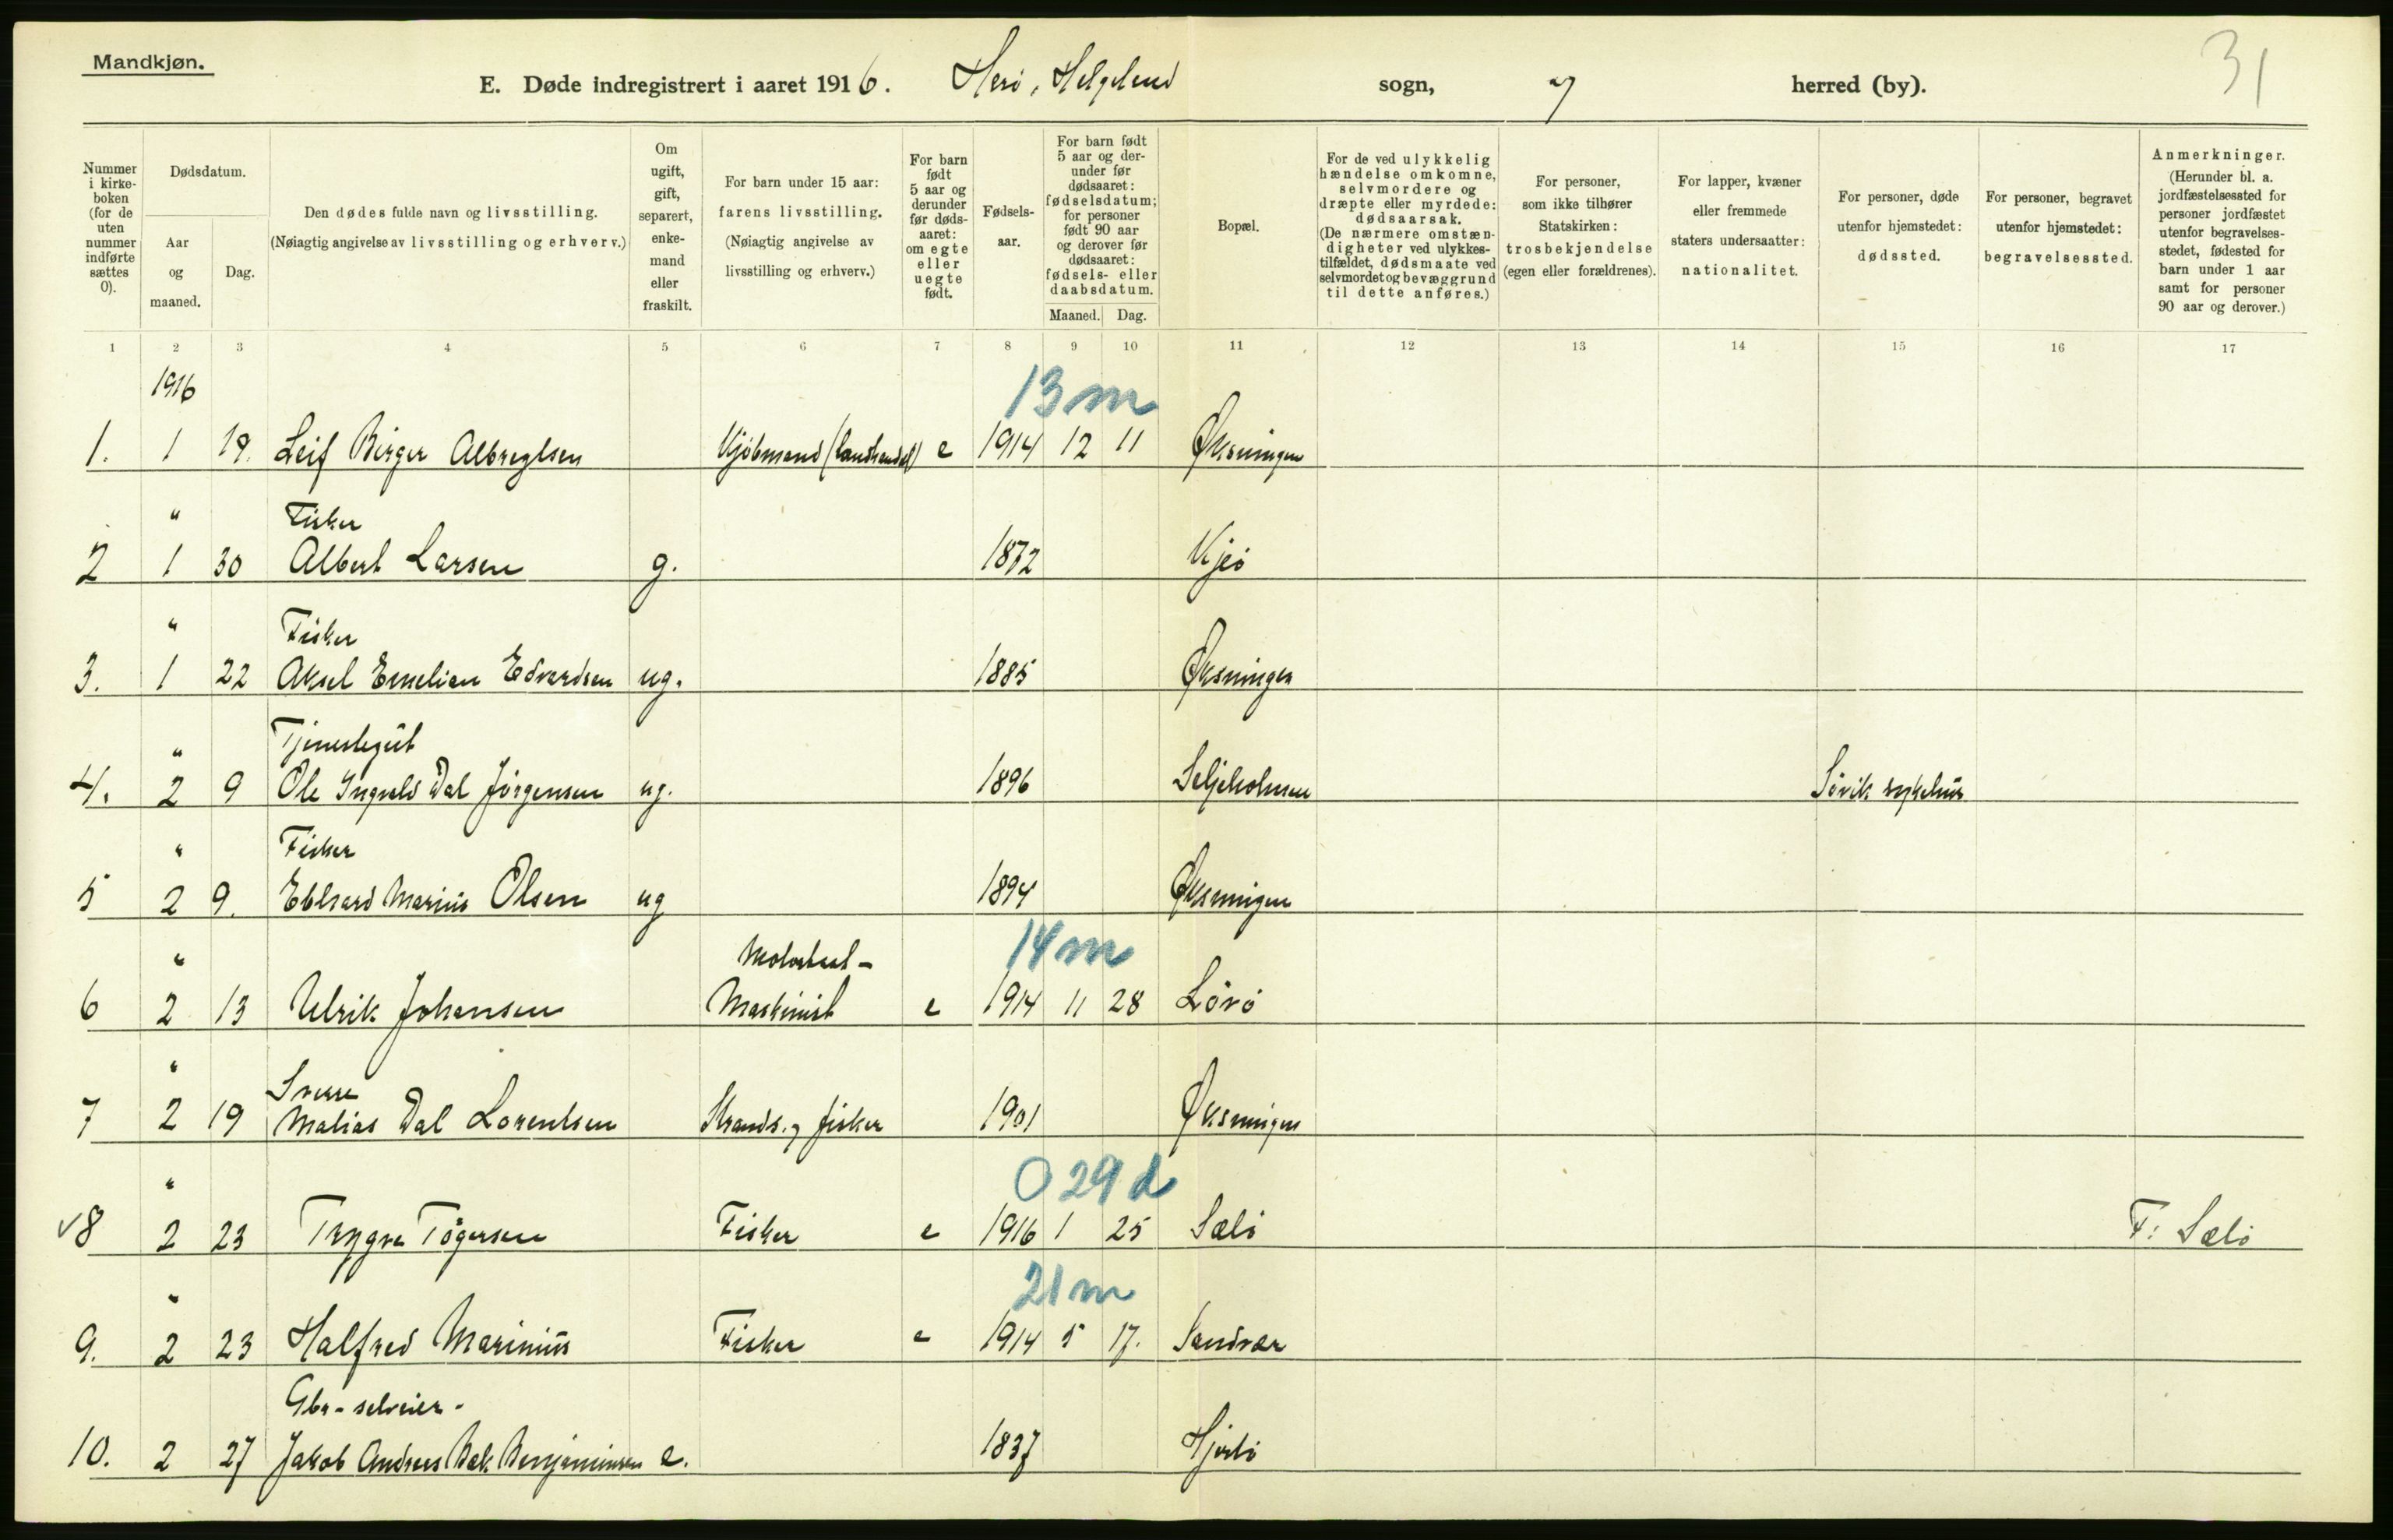 Mandkjøn.
31
E. Døde indregistrert i aaret 1916. Herö, Helgeland sogn, herred (by).
Nummer i kirke-boken (for de uten nummer indførte sættes 0).
Dødsdatum.
Aar og maaned.
Dag.
Den dødes fulde navn og livsstilling.
(Nøiagtig angivelse av livsstilling og erhverv.)
Om ugift, gift, separert, enke-mand eller fraskilt.
For barn under 15 aar: farens livsstilling.
(Nøiagtig angivelse av livsstilling og erhverv.)
For barn født 5 aar og derunder før døds-aaret: om egte eller uegte født.
Fødsels-aar.
For barn født 5 aar og der-under før dødsaaret: fødselsdatum; for personer født 90 aar og derover før dødsaaret: fødsels- eller daabsdatum.
Maaned. Dag.
Bopæl.
For de ved ulykkelig hændelse omkomne, selvmordere og dræpte eller myrdede: dødsaarsak.
(De nærmere omstæn-digheter ved ulykkes-tilfældet, dødsmaate ved selvmordet og bevæggrund til dette anføres.)
For personer, som ikke tilhører Statskirken: trosbekjendelse (egen eller forældrenes).
For lapper, kvæner eller fremmede staters undersaatter: nationalitet.
For personer, døde utenfor hjemstedet: dødssted.
For personer, begravet utenfor hjemstedet: begravelsessted.
Anmerkninger.
(Herunder bl. a. jordfæstelsessted for personer jordfæstet utenfor begravelses-stedet, fødested for barn under 1 aar samt for personer 90 aar og derover.)
1 2 3 4 5 6 7 8 9 10 11 12 13 14 15 16 17
1916
13 m
1. 1 19. Leif Birger Albregtsen Kjöbmand (landhandel) e 1914 12 11 Øksningen
" Fisker
2 1 30 Albert Larsen g. 1872 Kjeö
" Fisker
3. 1 22 Aksel Emelian Edvardsen ug. 1885 Øksningen
" Tjenestegut
4. 2 9 Ole Ingvald Dal Jörgensen ug. 1896 Seljeholmen Sövik sykehus
" Fisker
5 2 9. Edvard Marius Olsen ug 1894 Øksningen
" Motorbaat- 14 m
6 2 13 Ulrik Johansen Maskinist e 1914 11 28 Lövö
" Sverre
7 2 19 Matias Dal Lorentsen Strands. og fisker 1901 Øksningen
" 0 29 d
√8 2 23 Trygve Tögersen Fisker e 1916 1 25 Sælö F: Sælö
" 21 m
9. 2 23 Halfred Marinius Fisker e 1914 5 17. Sandvær
Gbr-selveier-
10. 2 27 Jakob Andreas Bek Benjaminsen e. 1837 Hjortö